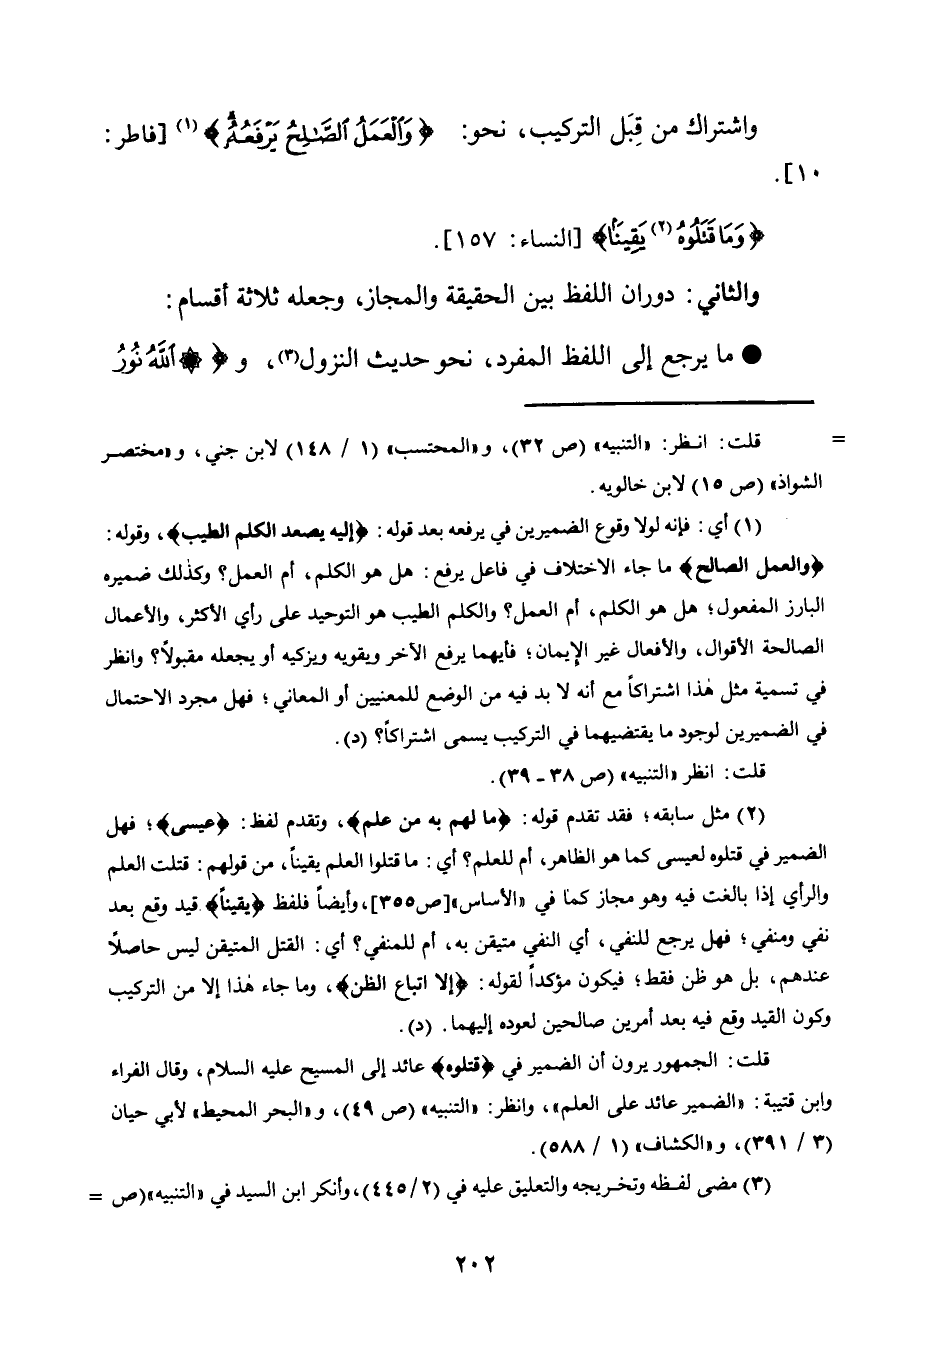 واشتراك من قِبَل التركيب، نحو: ﴿وَٱلْعَمَلُ ٱلصَّـٰلِحُ يَرْفَعُهُۥ﴾(١) [فاطر:
١٠].
﴿وَمَا قَتَلُوهُ(٢) يَقِينًۢا﴾ [النساء: ١٥٧].
والثاني: دوران اللفظ بين الحقيقة والمجاز، وجعله ثلاثة أقسام:
● ما يرجع إلى اللفظ المفرد، نحو حديث النزول(٣)، و ﴿۞ ٱللَّهُ نُورُ
= قلت: انـظر: «التنبيه» (ص ٣٢)، و«المحتسب» (١ / ١٤٨) لابن جني، و«مختصر
الشواذ» (ص ١٥) لابن خالويه.
(١) أي: فإنه لولا وقوع الضميرين في يرفعه بعد قوله: ﴿إليه يصعد الكلم الطيب﴾، وقوله:
﴿والعمل الصالح﴾ ما جاء الاختلاف في فاعل يرفع: هل هو الكلم، أم العمل؟ وكذلك ضميره
البارز المفعول؛ هل هو الكلم، أم العمل؟ والكلم الطيب هو التوحيد على رأي الأكثر، والأعمال
الصالحة الأقوال، والأفعال غير الإيمان؛ فأيهما يرفع الآخر ويقويه ويزكيه أو يجعله مقبولاً؟ وانظر
في تسمية مثل هٰذا اشتراكاً مع أنه لا بد فيه من الوضع للمعنيين أو المعاني؛ فهل مجرد الاحتمال
في الضميرين لوجود ما يقتضيهما في التركيب يسمى اشتراكاً؟ (د).
قلت: انظر «التنبيه» (ص ٣٨ ـ ٣٩).
(٢) مثل سابقه؛ فقد تقدم قوله: ﴿ما لهم به من علم﴾، وتقدم لفظ: ﴿عيسى﴾؛ فهل
الضمير في قتلوه لعيسى كما هو الظاهر، أم للعلم؟ أي: ما قتلوا العلم يقيناً، من قولهم: قتلت العلم
والرأي إذا بالغت فيه وهو مجاز كما في «الأساس» [ص٣٥٥]، وأيضاً فلفظ ﴿يقيناً﴾ قيد وقع بعد
نفي ومنفي؛ فهل يرجع للنفي، أي النفي متيقن به، أم للمنفي؟ أي: القتل المتيقن ليس حاصلاً
عندهم، بل هو ظن فقط؛ فيكون مؤكداً لقوله: ﴿إلا اتباع الظن﴾، وما جاء هٰذا إلا من التركيب
وكون القيد وقع فيه بعد أمرين صالحين لعوده إليهما. (د).
قلت: الجمهور يرون أن الضمير في ﴿قتلوه﴾ عائد إلى المسيح عليه السلام، وقال الفراء
وابن قتيبة: «الضمير عائد على العلم»، وانظر: «التنبيه» (ص ٤٩)، و«البحر المحيط» لأبي حيان
(٣ / ٣٩١)، و«الكشاف» (١ / ٥٨٨).
(٣) مضى لفـظه وتخـريجه والتعليق عليه في (٢/٤٤٥)، وأنكر ابن السيد في «التنبيه»(ص =
٢٠٢